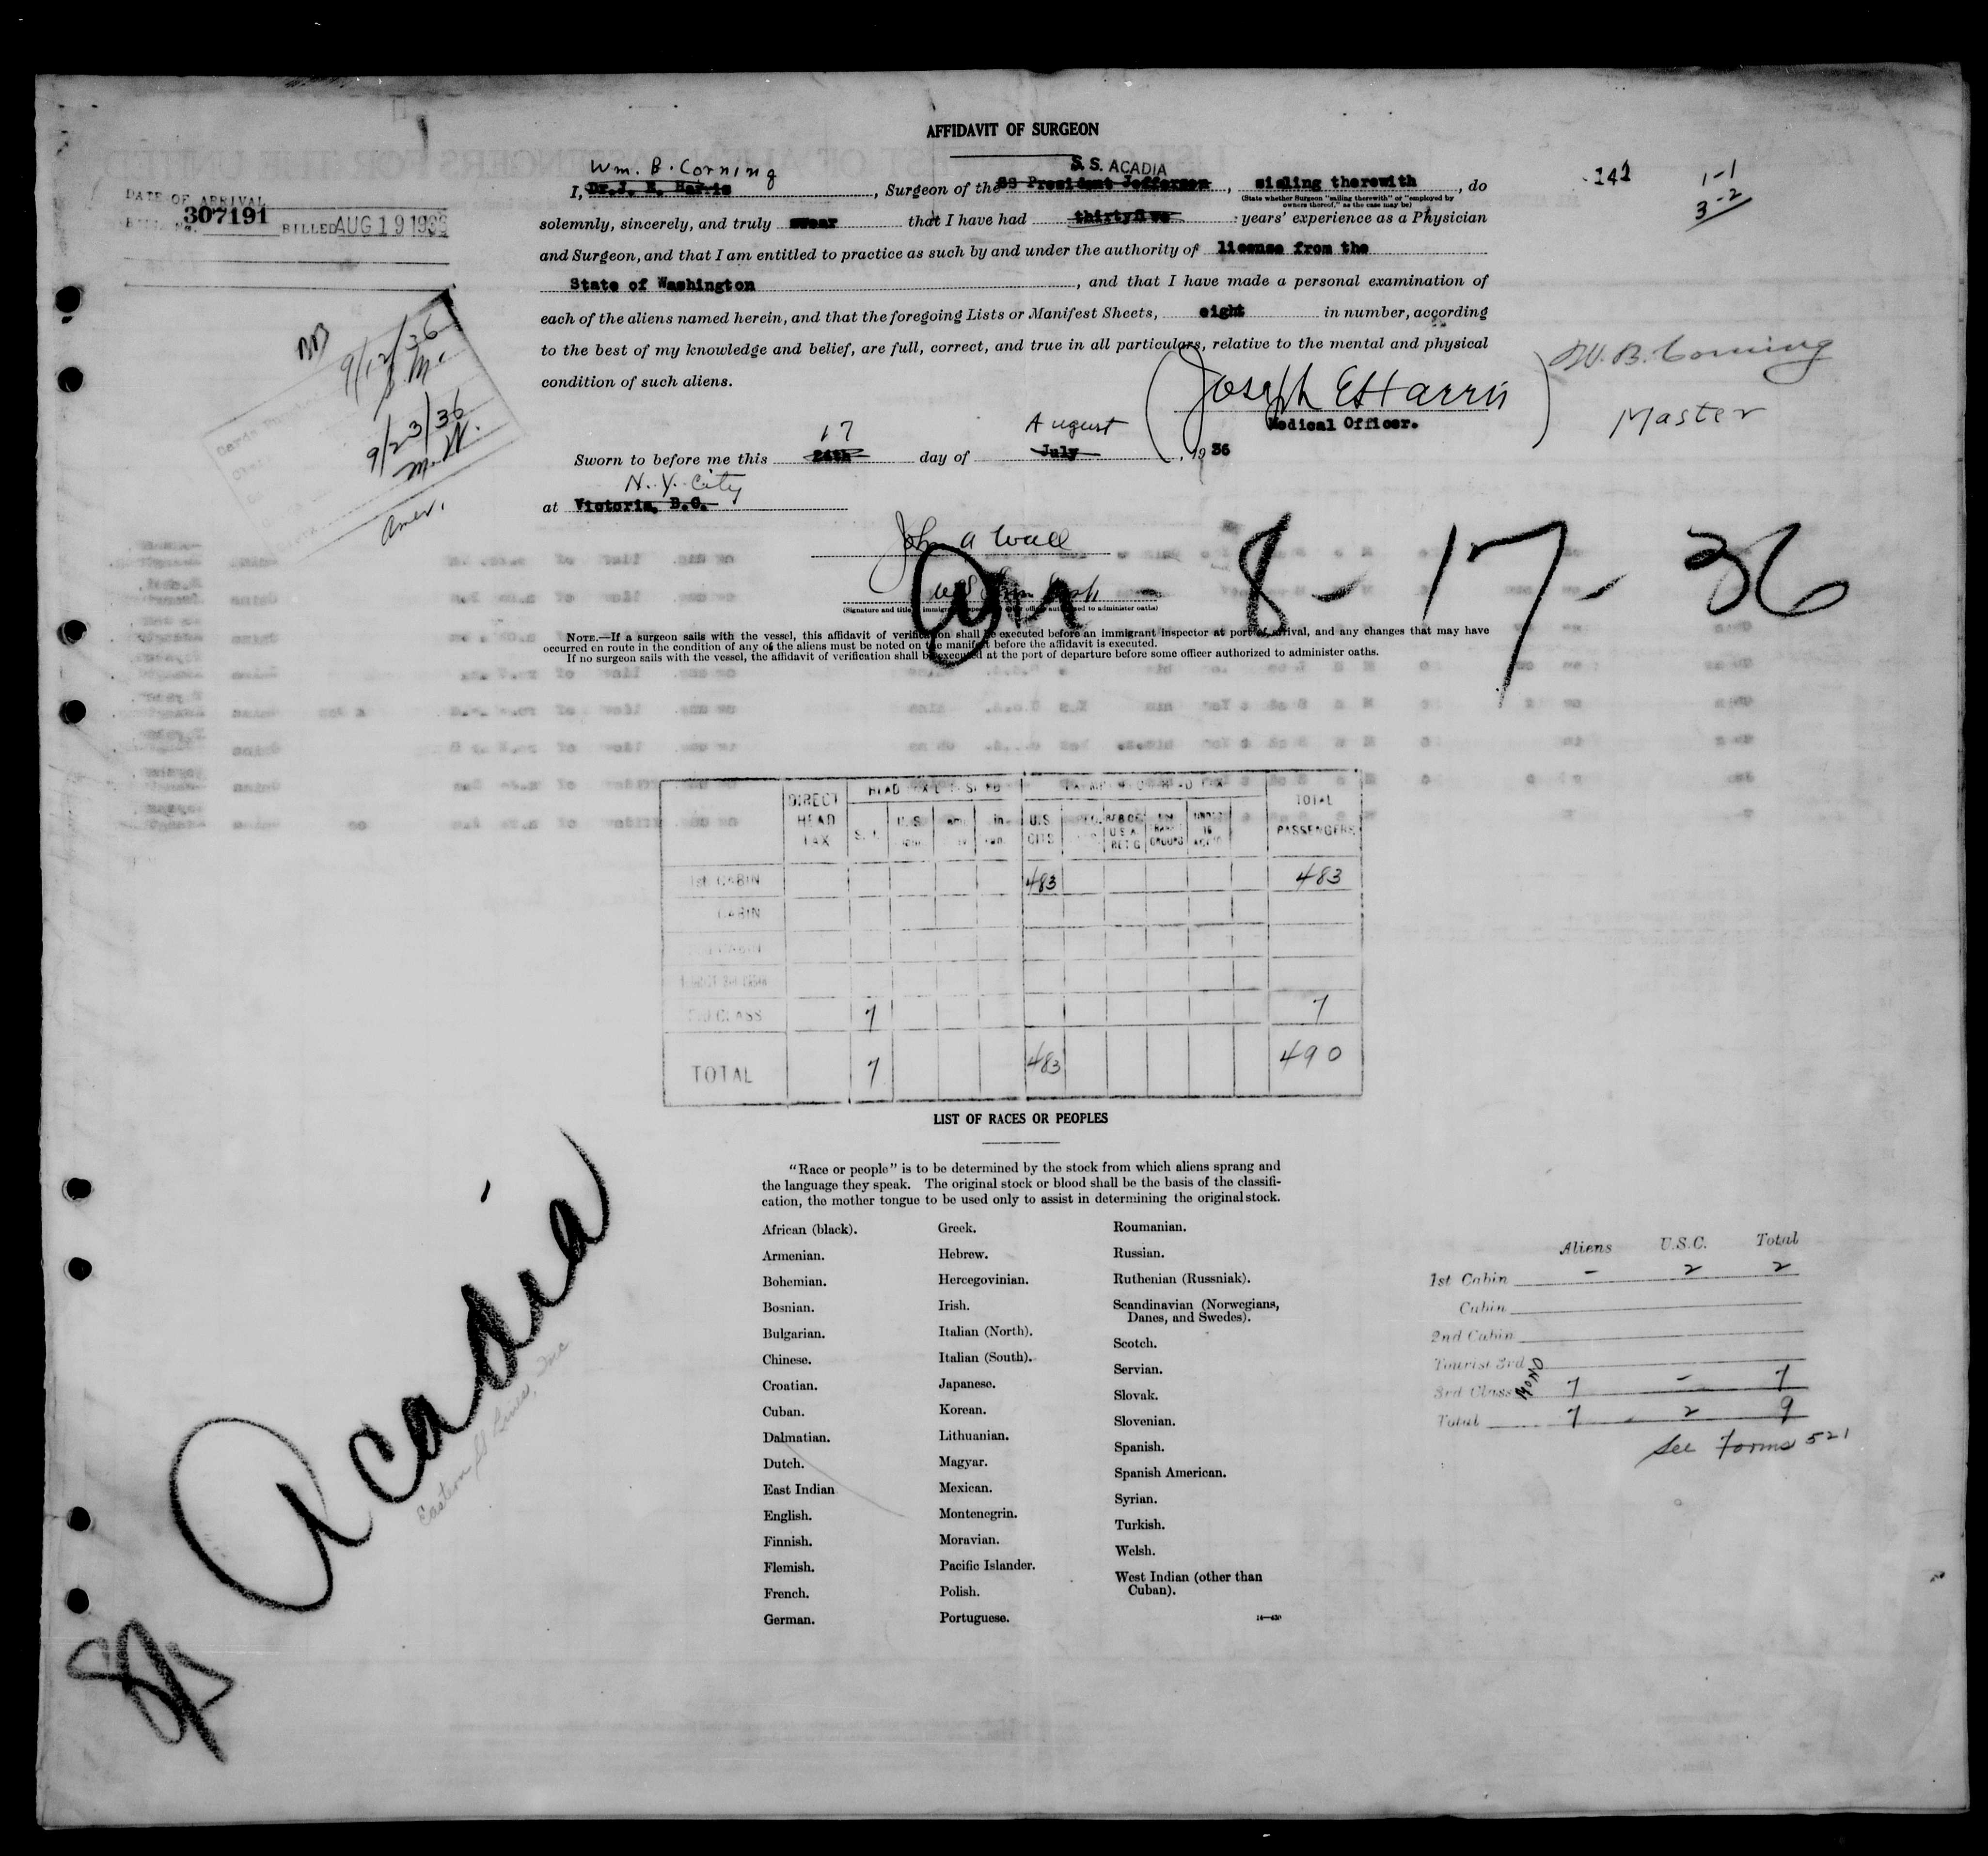 AFFIDAVIT OF SURGEON
Wm. B. Corning
S. S. ACADIA
I, Dr. J. E. Harris, Surgeon of the SS President Jefferson, sialing therewith, do
(State whether Surgeon "sailing therewith" or "employed by owners thereof," as the case may be)
solemnly, sincerely, and truly swear that I have had thirtyfive years' experience as a Physician
and Surgeon, and that I am entitled to practice as such by and under the authority of license from the
State of Washington, and that I have made a personal examination of
each of the aliens named herein, and that the foregoing Lists or Manifest Sheets, eight in number, according
to the best of my knowledge and belief, are full, correct, and true in all particulars, relative to the mental and physical
condition of such aliens.
DATE OF ARRIVAL
BILL No. 307191 BILLED AUG 19 1936
141
1-1
3-2
9/12/36
9/23/36
Amer.
Joseph E Harris
Medical Officer.
W. B. Corning
Master
17 August
Sworn to before me this 24th day of July, 1936
N. Y. City
at Victoria, B.C.
John A Wall
(Signature and title of immigrant inspector or other officer authorized to administer oaths)
8-17-36
NOTE.—If a surgeon sails with the vessel, this affidavit of verification shall be executed before an immigrant inspector at port of arrival, and any changes that may have
occurred en route in the condition of any of the aliens must be noted on the manifest before the affidavit is executed.
If no surgeon sails with the vessel, the affidavit of verification shall be executed at the port of departure before some officer authorized to administer oaths.
DIRECT HEAD TAX
U.S. CITS
TOTAL PASSENGERS
1st CABIN 483 483
CABIN
CABIN
3RD CLASS 7 7
TOTAL 7 483 490
LIST OF RACES OR PEOPLES
"Race or people" is to be determined by the stock from which aliens sprang and
the language they speak. The original stock or blood shall be the basis of the classifi-
cation, the mother tongue to be used only to assist in determining the original stock.
African (black).
Armenian.
Bohemian.
Bosnian.
Bulgarian.
Chinese.
Croatian.
Cuban.
Dalmatian.
Dutch.
East Indian
English.
Finnish.
Flemish.
French.
German.
Greek.
Hebrew.
Hercegovinian.
Irish.
Italian (North).
Italian (South).
Japanese.
Korean.
Lithuanian.
Magyar.
Mexican.
Montenegrin.
Moravian.
Pacific Islander.
Polish.
Portuguese.
Roumanian.
Russian.
Ruthenian (Russniak).
Scandinavian (Norwegians,
Danes, and Swedes).
Scotch.
Servian.
Slovak.
Slovenian.
Spanish.
Spanish American.
Syrian.
Turkish.
Welsh.
West Indian (other than
Cuban).
Aliens U.S.C. Total
1st Cabin - 2 2
Cabin
2nd Cabin
Tourist 3rd
3rd Class 7 - 7
Total 7 2 9
See Forms 521
Acadia
Eastern SS Lines, Inc